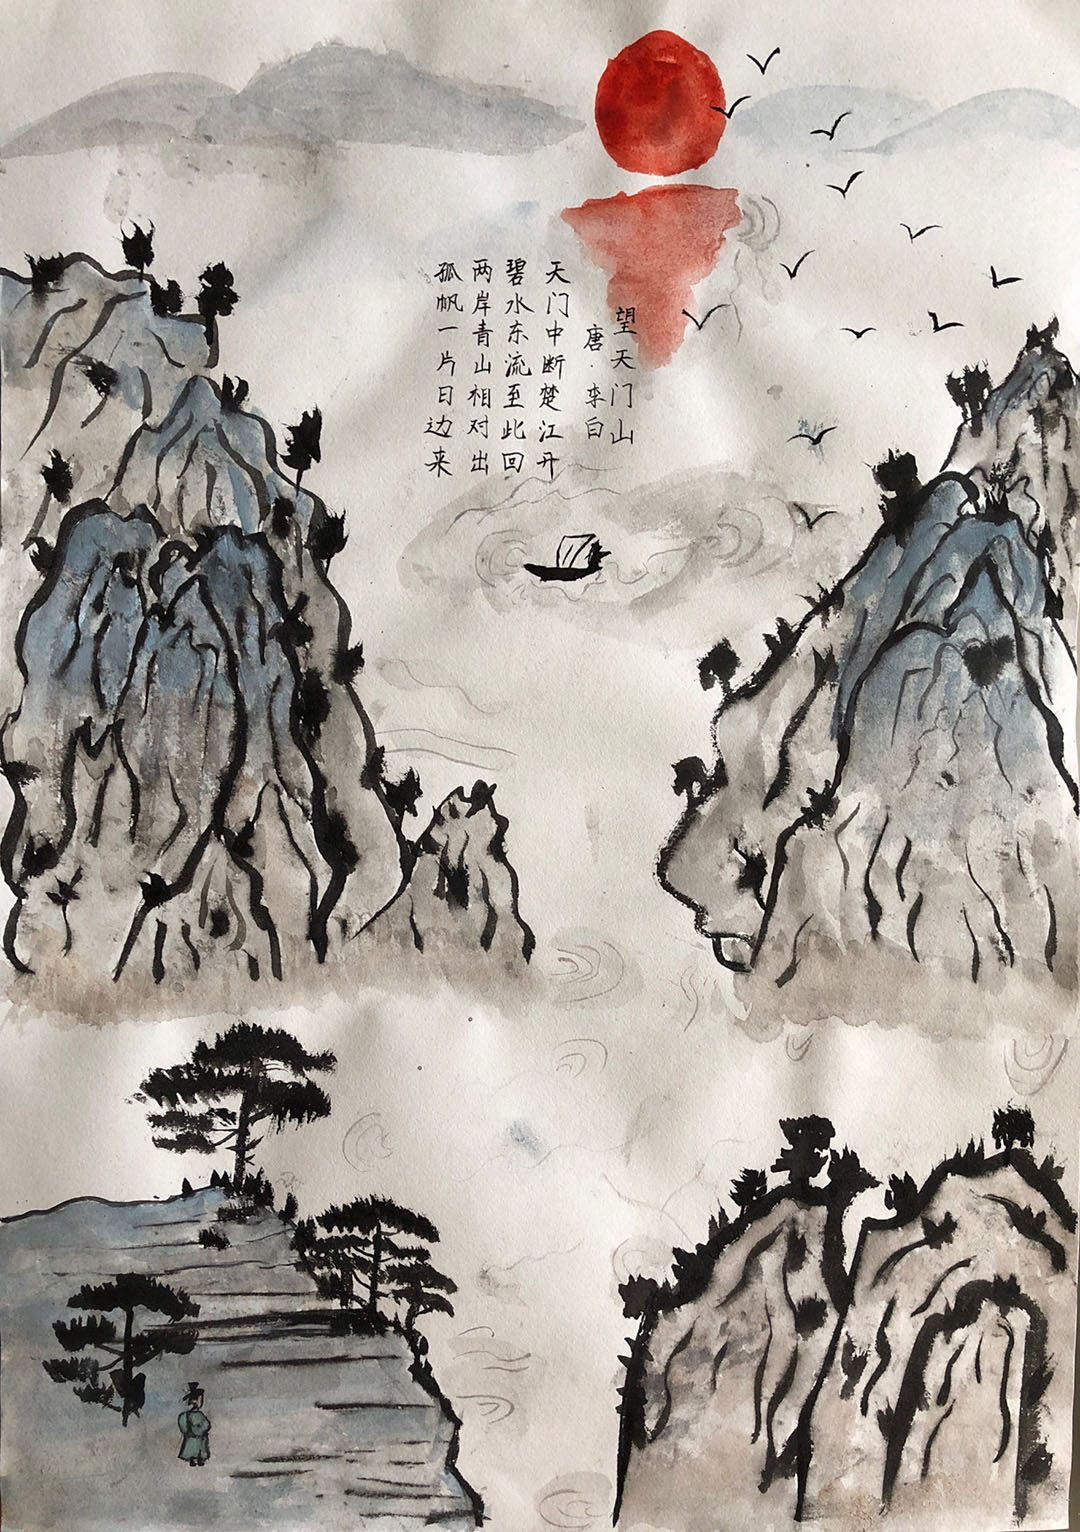 望天门山
唐·李白
天门中断楚江开
碧水东流至此回
两岸青山相对出
孤帆一片日边来